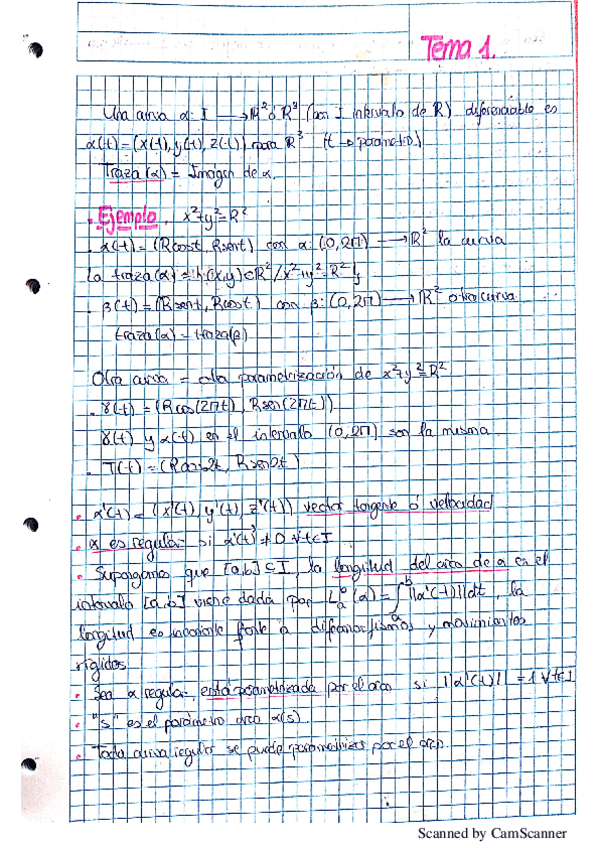 Tema 1.
Una curva α: I → R² ó R³ (con I intervalo de R) diferenciable es
α(t) = (x(t), y(t), z(t)) para R³ (t → parámetro)
Traza (α) = Imagen de α.
Ejemplo, x²+y²=R²
α(t) = (Rcost, Rsent) con α: (0,2π) → R² la curva
la traza(α) = {(x,y)∈R²/x²+y²=R²}
β(t) = (Rsent, Rcost) con β: (0,2π) → R² otra curva
traza(α) = traza(β)
Otra curva = otra parametrización de x²+y²=R²
γ(t) = (Rcos(2πt), Rsen(2πt))
γ(t) y α(t) en el intervalo (0,2π] son la misma.
T(t) = (Rcos2t, Rsen2t)
α'(t) = (x'(t), y'(t), z'(t)) vector tangente ó velocidad
α es regular si α'(t) ≠ 0 ∀t∈I
Supongamos que [a,b] ⊆ I, la longitud del arco de α en el
intervalo [a,b] viene dada por L_a^b(α) = ∫_a^b ||α'(t)||dt, la
longitud es invariante frente a difeomorfismos y movimientos
rígidos
Sea α regular, está parametrizada por el arco si ||α'(t)|| = 1 ∀t∈I
"s" es el parámetro arco α(s)
Toda curva regular se puede parametrizar por el arco.
Scanned by CamScanner